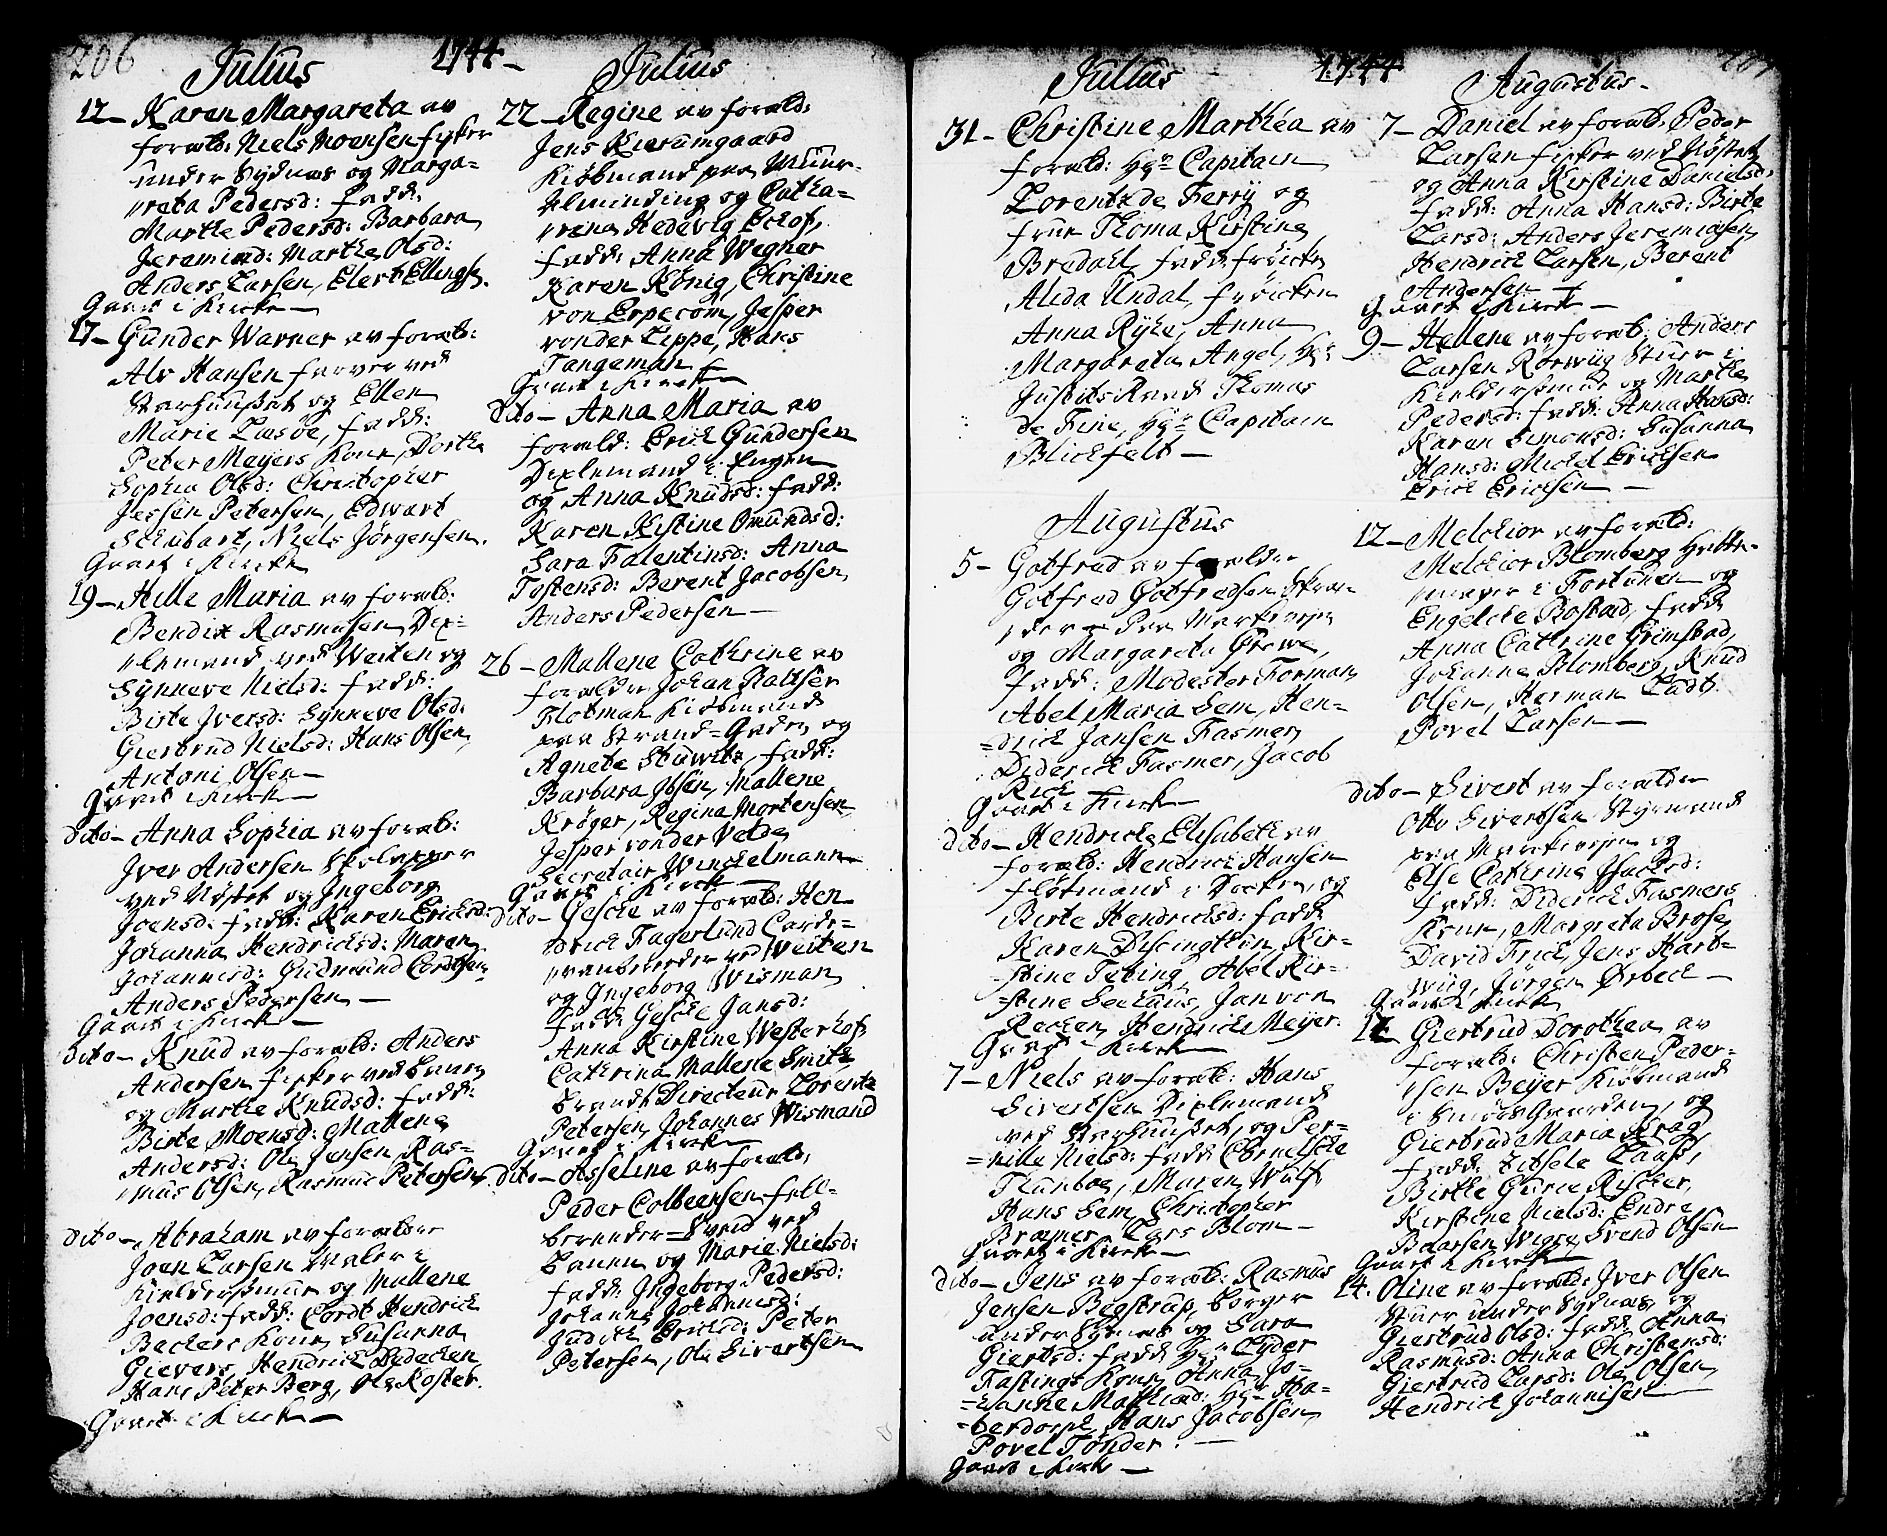 206
Julius
1744
12 – Karen Margareta av
foræld: Niels Moensen fisker
under Sydnæs og Marga=
reta Pedersd: fadd:
Marthe Pedersd: Barbara
Jeremiæd: Marthe Olsd:
Anders Larsen, Elert Ellings:
Gaaet i Kircke –
17 – Gunder Warner av foræld:
Alv Hansen farver ved
og Ellen
Marie Lusöe, fadd:
Peter Meyers Kone, Dorthe
Sophia Olsd: Christopher
Jessen Petersen, Edwart
Schubart, Niels Jörgensen.
Gaaet i Kircke
19 – Hille Maria av foræld:
Bendix Rasmusen Dix=
lemand ved Weiten og
Synneve Nielsd: fadd:
Birte Iversd: Synneve Olsd:
Giertrud Nielsd: Hans Olsen,
Antoni Olsen –
Gaaet i Kirck –
dito – Anna Sophia av foræld:
Iver Andersen
ved Nöstet og Ingeborg
Joensd: fadd: Karen Ericksd:
Johanna Hendricksd: Maren
Johannisd: Gudmund Cordtsen
Anders Pedersen –
Gaaet i Kirck –
dito – Knud av foræld: Anders
Andersen fisker ved
og Marthe Knudsd: fadd:
Birte Moensd: Mallene
Andersd: Ole Jensen, Ras=
mus Olsen, Rasmus Petersen
dito – Abraham av forældre
Joen Larsen Maler i
og Mallene
Joensd: fadd: Cordt Hendrick
Beckers Kone, Susanna
Gievers, Hendrick Dedecken
Hans Peter Berg, Ole Roster.
Gaaet i Kirck –
Julius
22 – Regine av foræld:
Jens Kierumgaard
Kiöbmand paa Muur-
Alminding og Catha=
rina Hedevig Eckof,
fadd: Anna Wegner
Karen König, Christine
von Erpecom, Jesper
vonder Lippe, Hans
Tangeman
Gaaet i Kirck –
dito – Anna Maria av
foræld: Erick Gundersen
Dixlemand i Engen
og Anna Knudsd: fadd:
Karen Kistine Omundsd:
Sara Falentinsd: Anna
Tostensd: Berent Jacobsen,
Anders Pedersen –
26 – Mallene Cathrine av
forældre Johan Baltser
Flotman Kiöbmand
paa Strand=Gaden og
Agnete Stuwitz, fadd:
Barbara Ibsen, Mallene
Kröger, Regina Mortensen,
Jesper vonder Velde,
Secretair Winckelmann
Gaaet i Kirck –
dito – Gesche av foræld: Hen
drick Fagerlund
ved Weiten
og Ingeborg Wisman
fadd: Gesche Jansd:
Anna Kirstine Westerhof,
Cathrina Mallene Smith
brandt Directeur Lorentz
Petersen, Johannes Wismand
Gaaet i Kirck –
dito – Asseline av foræld:
Peder Colbeensen fell=
bereder=Svend ved
og Marie Nielsd:
fadd: Ingeborg Pedersd:
Johanne Johannisd:
Judith Ericksd: Peter
Petersen, Ole Sivertsen
Julius
1744
31 – Christine Marthea av
foræld: Hr Capitain
Lorentz de Ferry og
frue Thoma Kirstine
Bredahl, fadd: fröicken
Alida Undal, fröicken
Anna Ryhe, Anna
Margareta Angel, Hr:
Justits Raad Thomas
de Fine, Hr Capitain
Blichfelt –
Augustus
5 – Gotfred av forældre
Gotfred Gotfredsen Skræ=
der paa Marckevejen
og Margareta Greve,
fadd: Modester Forman,
Abel Maria Sem, Hen=
=drick Jansen Fasmer,
Diderick Fasmer, Jacob
Rick
Gaaet i Kirck –
dito – Hendricke Elisabeth av
foræld: Hendrick Hansen
flötmand i og
Birte Hendricksd: fadd:
Karen Kir=
=stine Tebing, Abel Kir=
=stine Seehaus, Jan von
Recken, Hendrich Meyer.
Gaaet i Kirck –
7 – Niels av foræld: Hans
Sivertsen Dixlemand
ved og Per=
=nille Nielsd: fadd:
Maren Wulf,
Hans Sem, Christopher
Bræmer, Lars Blom –
Gaaet i Kirck –
dito – Jens av foræld: Rasmus
Jensen Begstrup, borger
under Sydnæs og Sara
Giertsd: fadd: Hr Lyder
Fastings Kone, Anna Jo=
=hanne Mathiæd: Hr Ha=
=berdorph, Hans Jacobsen,
Povel Tönder. –
Gaaet i Kirck –
Augustus –
7 – Daniel av foræld: Peder
Larsen fisker ved Nöstet
og Anna Kirstine Danielsd,
fadd: Anna Hansd: Birte
Larsd: Anders Jeremiasen,
Hendrick Larsen, Berent
Andersen
Gaaet i Kirck –
9 – Hellene av foræld: Anders
Larsen Rörwiig Stuer i
og Marthe
Pedersd: fadd: Anna Hansd:
Karen Simonsd: Susanna
Hansd: Michel Ericksen
Erick Ericksen –
12 – Melchior av foræld:
Melchior Blomberg
i Fortunen og
Engelche Bostad, fadd:
Anna Cathrine Grimstad,
Johanne Blomberg, Knud
Olsen, Herman Ladts
Povel Larsen –
dito – Sivert av forældre
Otto Sivertsen Styrmand
paa Marckevejen og
Else Cathrina Isacksd:
fadd: Diderick Fasmers
Kone, Margreta Brose,
David Frick, Jens Hart=
wiig, Jörgen Orbeck –
Gaaet i Kirck
12 Giertrud Dorothea av
foræld: Christen Peder=
sen Beyer Kiöbmand
i Smörs Gaarden, og
Giertrud Maria Krag,
fadd: Zitsele
Birthe Gurie Rischer,
Kirstine Nielsd: Endre
Baarsen Svend Olsen
Gaaet i Kirck
14. Oline av foræld: Iver Olsen
Stuer under Sydnæs og
Giertrud Olsd: fadd: Anna
Rasmusd: Anna Christensd:
Giertrud Larsd: Ole Olsen,
Hendrick Johannisen –